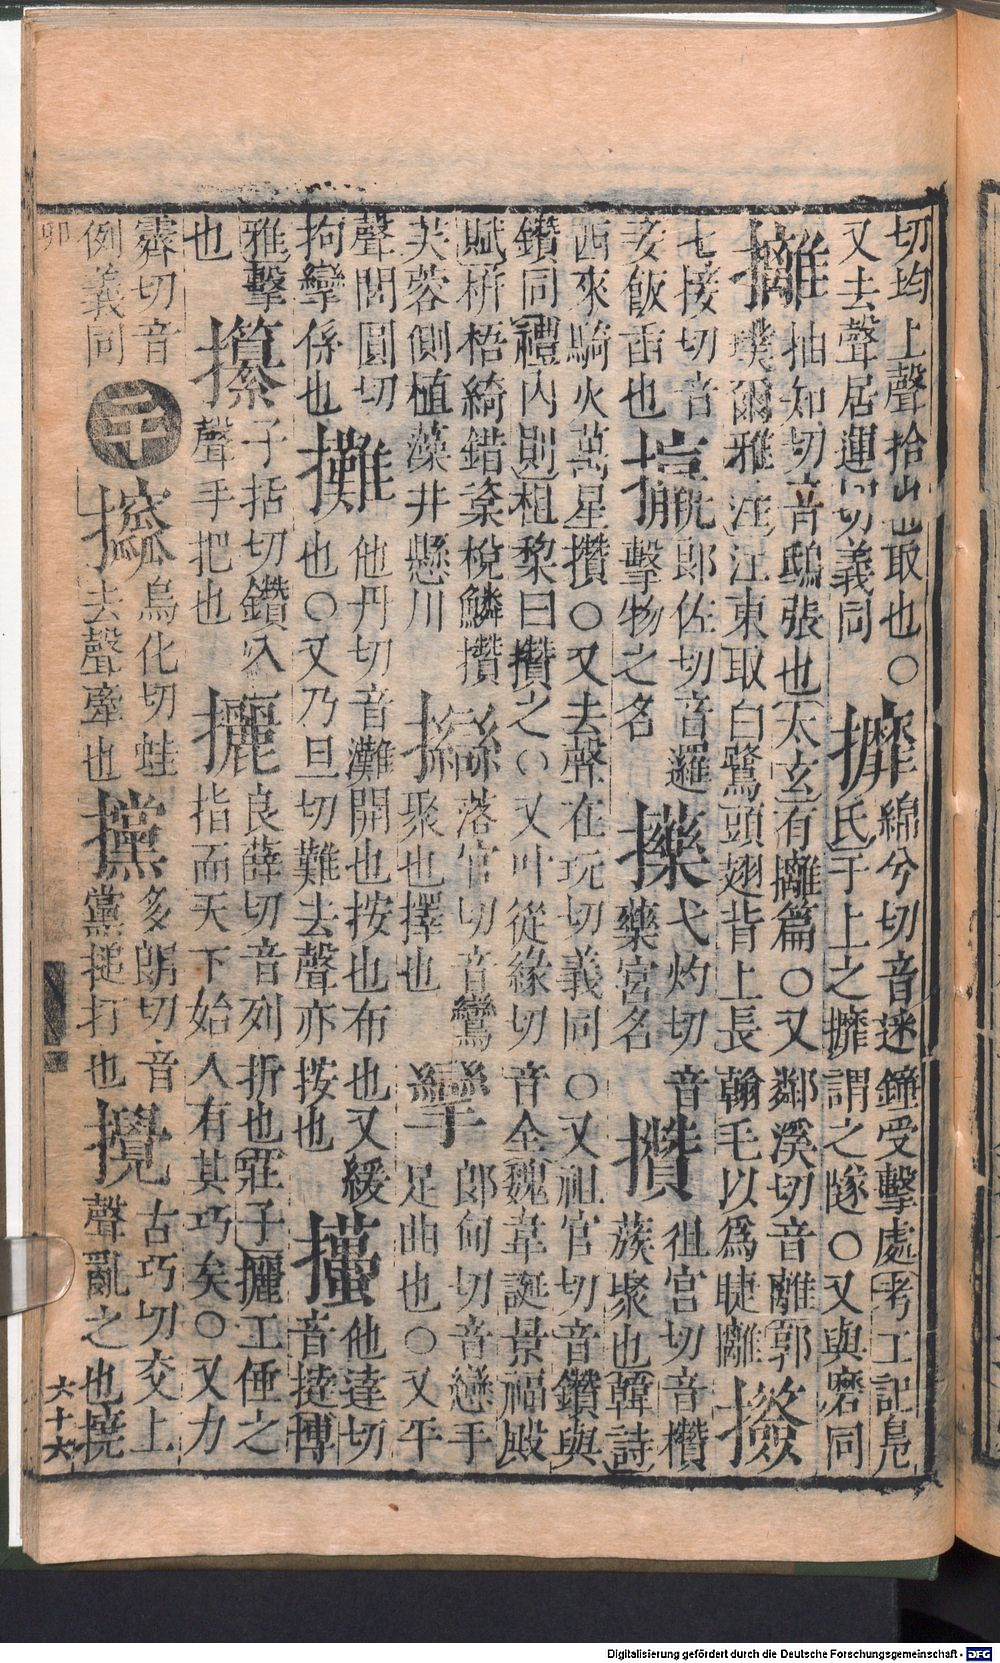 切均上聲拾也取也○又去聲居運切義同 攠 綿兮切音迷鐘受擊處考工記鳧氏于上之攠謂之隧○又與磨同
攡 抽知切音鴟張也太玄有攡篇○又鄰溪切音離郭璞爾雅注江東取白鷺頭翅背上長翰毛以爲睫攡
七接切音妾飯臿也 郎佐切音邏擊物之名 弋灼切音藥宮名 攢 徂官切音欑蔟聚也韓詩
西來騎火萬星攢○又去聲在玩切義同○又祖官切音鑽與鑽同禮內則柤棃曰攢之○又叶從緣切音全魏韋誕景福殿
賦栟梧綺錯楶梲鱗攢芙蓉側植藻井懸川 落官切音鸞聚也擇也 攣 郎甸切音戀手足曲也○又平
聲閭圓切拘攣係也 攤 他丹切音灘開也按也布也又緩也○又乃旦切難去聲亦按也 他達切音撻博
雅擊也 攥 子括切鑽入聲手把也 攦 良薛切音列折也莊子攦工倕之指而天下始人有其巧矣○又力
霽切音例義同 二十 烏化切蛙去聲牽也 攩 多朗切音黨搥打也 攪 古巧切交上聲亂之也撓
卯
六十六
Digitalisierung gefördert durch die Deutsche Forschungsgemeinschaft - DFG